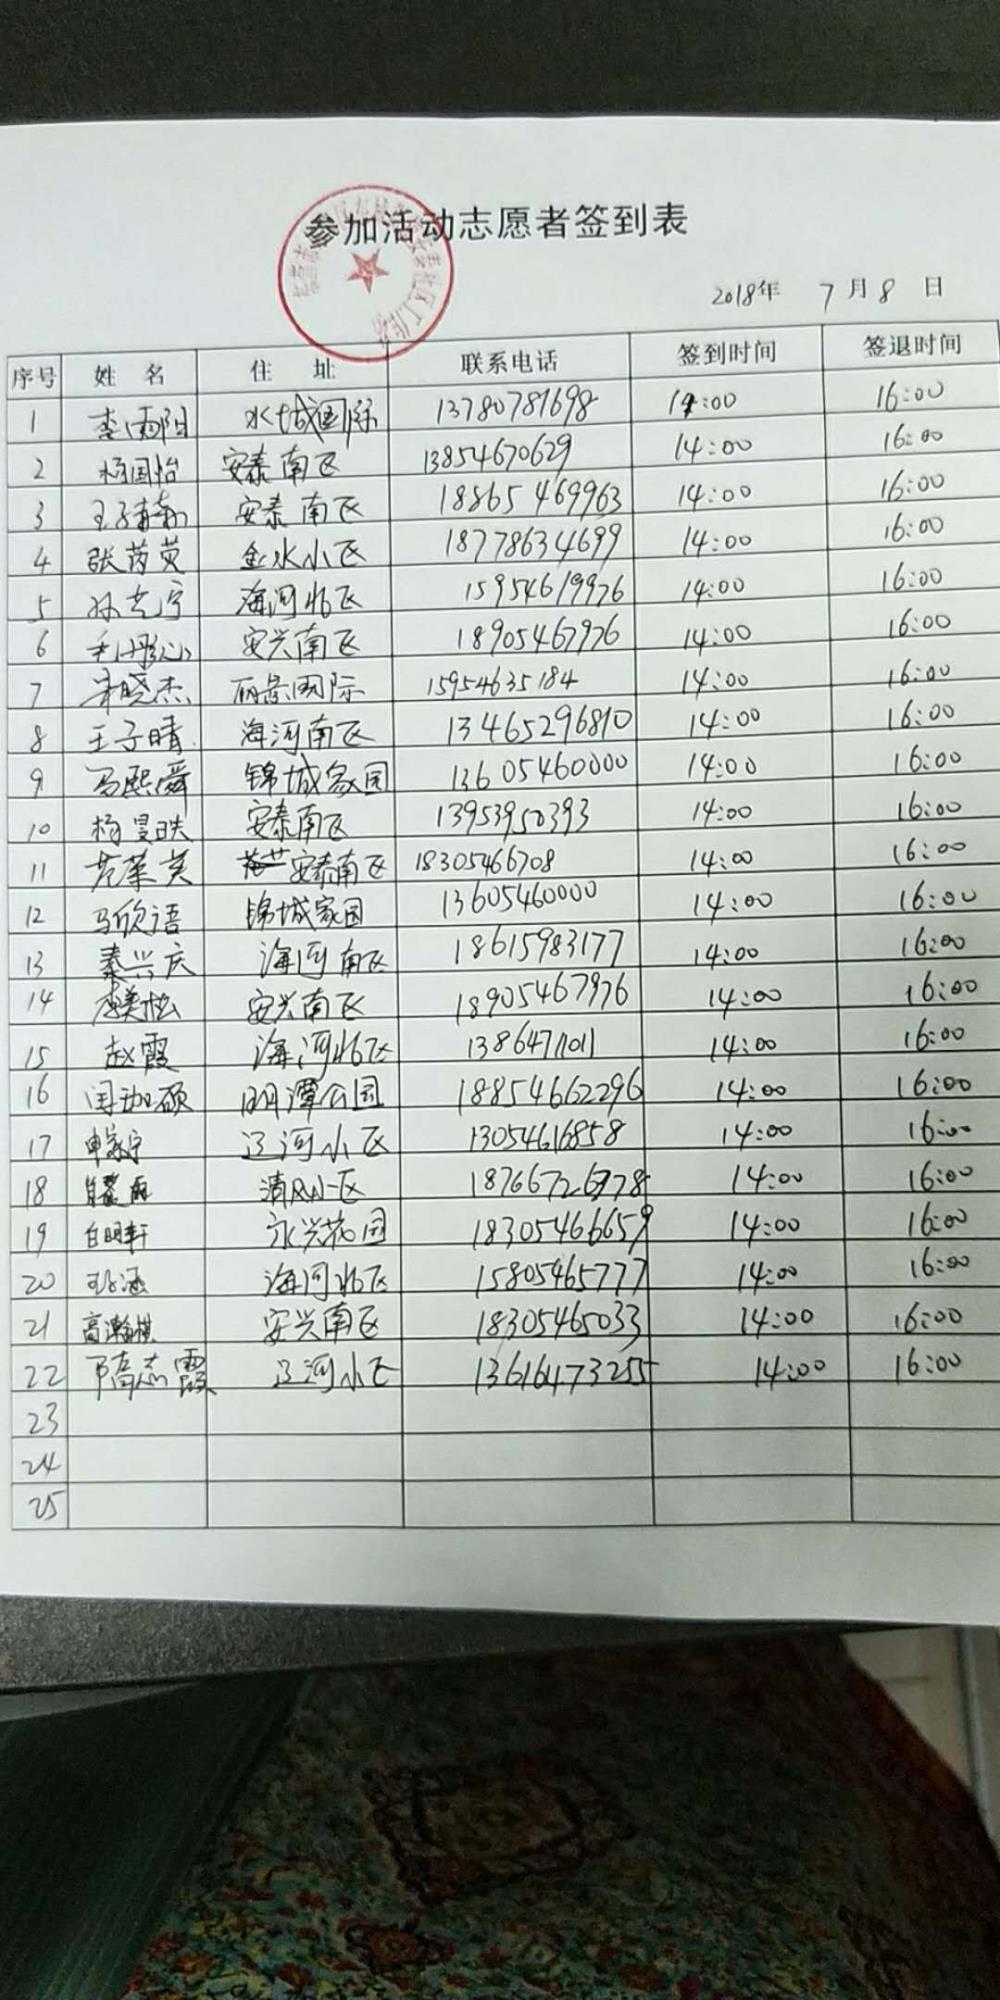 参加活动志愿者签到表
2018年 7月8日
序号 姓 名 住 址 联系电话 签到时间 签退时间
1 李雨阳 水城国际 13780781698 14:00 16:00
2 杨国怡 安泰南区 13854670629 14:00 16:00
3 安泰南区 18865469963 14:00 16:00
4 张芮英 金水小区 18778634699 14:00 16:00
5 海河北区 15954619976 14:00 16:00
6 毛丹心 安兴南区 18905467976 14:00 16:00
7 宋晓杰 丽景国际 15954635184 14:00 16:00
8 王子晴 海河南区 13465296810 14:00 16:00
9 马熙舜 锦城家园 13605460000 14:00 16:00
10 杨昊昳 安泰南区 13953950393 14:00 16:00
11 安泰南区 18305466708 14:00 16:00
12 马欣语 锦城家园 13605460000 14:00 16:00
13 秦兴庆 海河南区 18615983177 14:00 16:00
14 安兴南区 18905467976 14:00 16:00
15 赵霞 海河北区 13864711011 14:00 16:00
16 明潭公园 18854662296 14:00 16:00
17 申家宁 辽河小区 13054616858 14:00 16:00
18 清风小区 14:00 16:00
19 白明轩 永兴花园 18305466659 14:00 16:00
20 海河北区 15805465777 14:00 16:00
21 高瀚棋 安兴南区 18305465033 14:00 16:00
22 辽河小区 13616473255 14:00 16:00
23
24
25